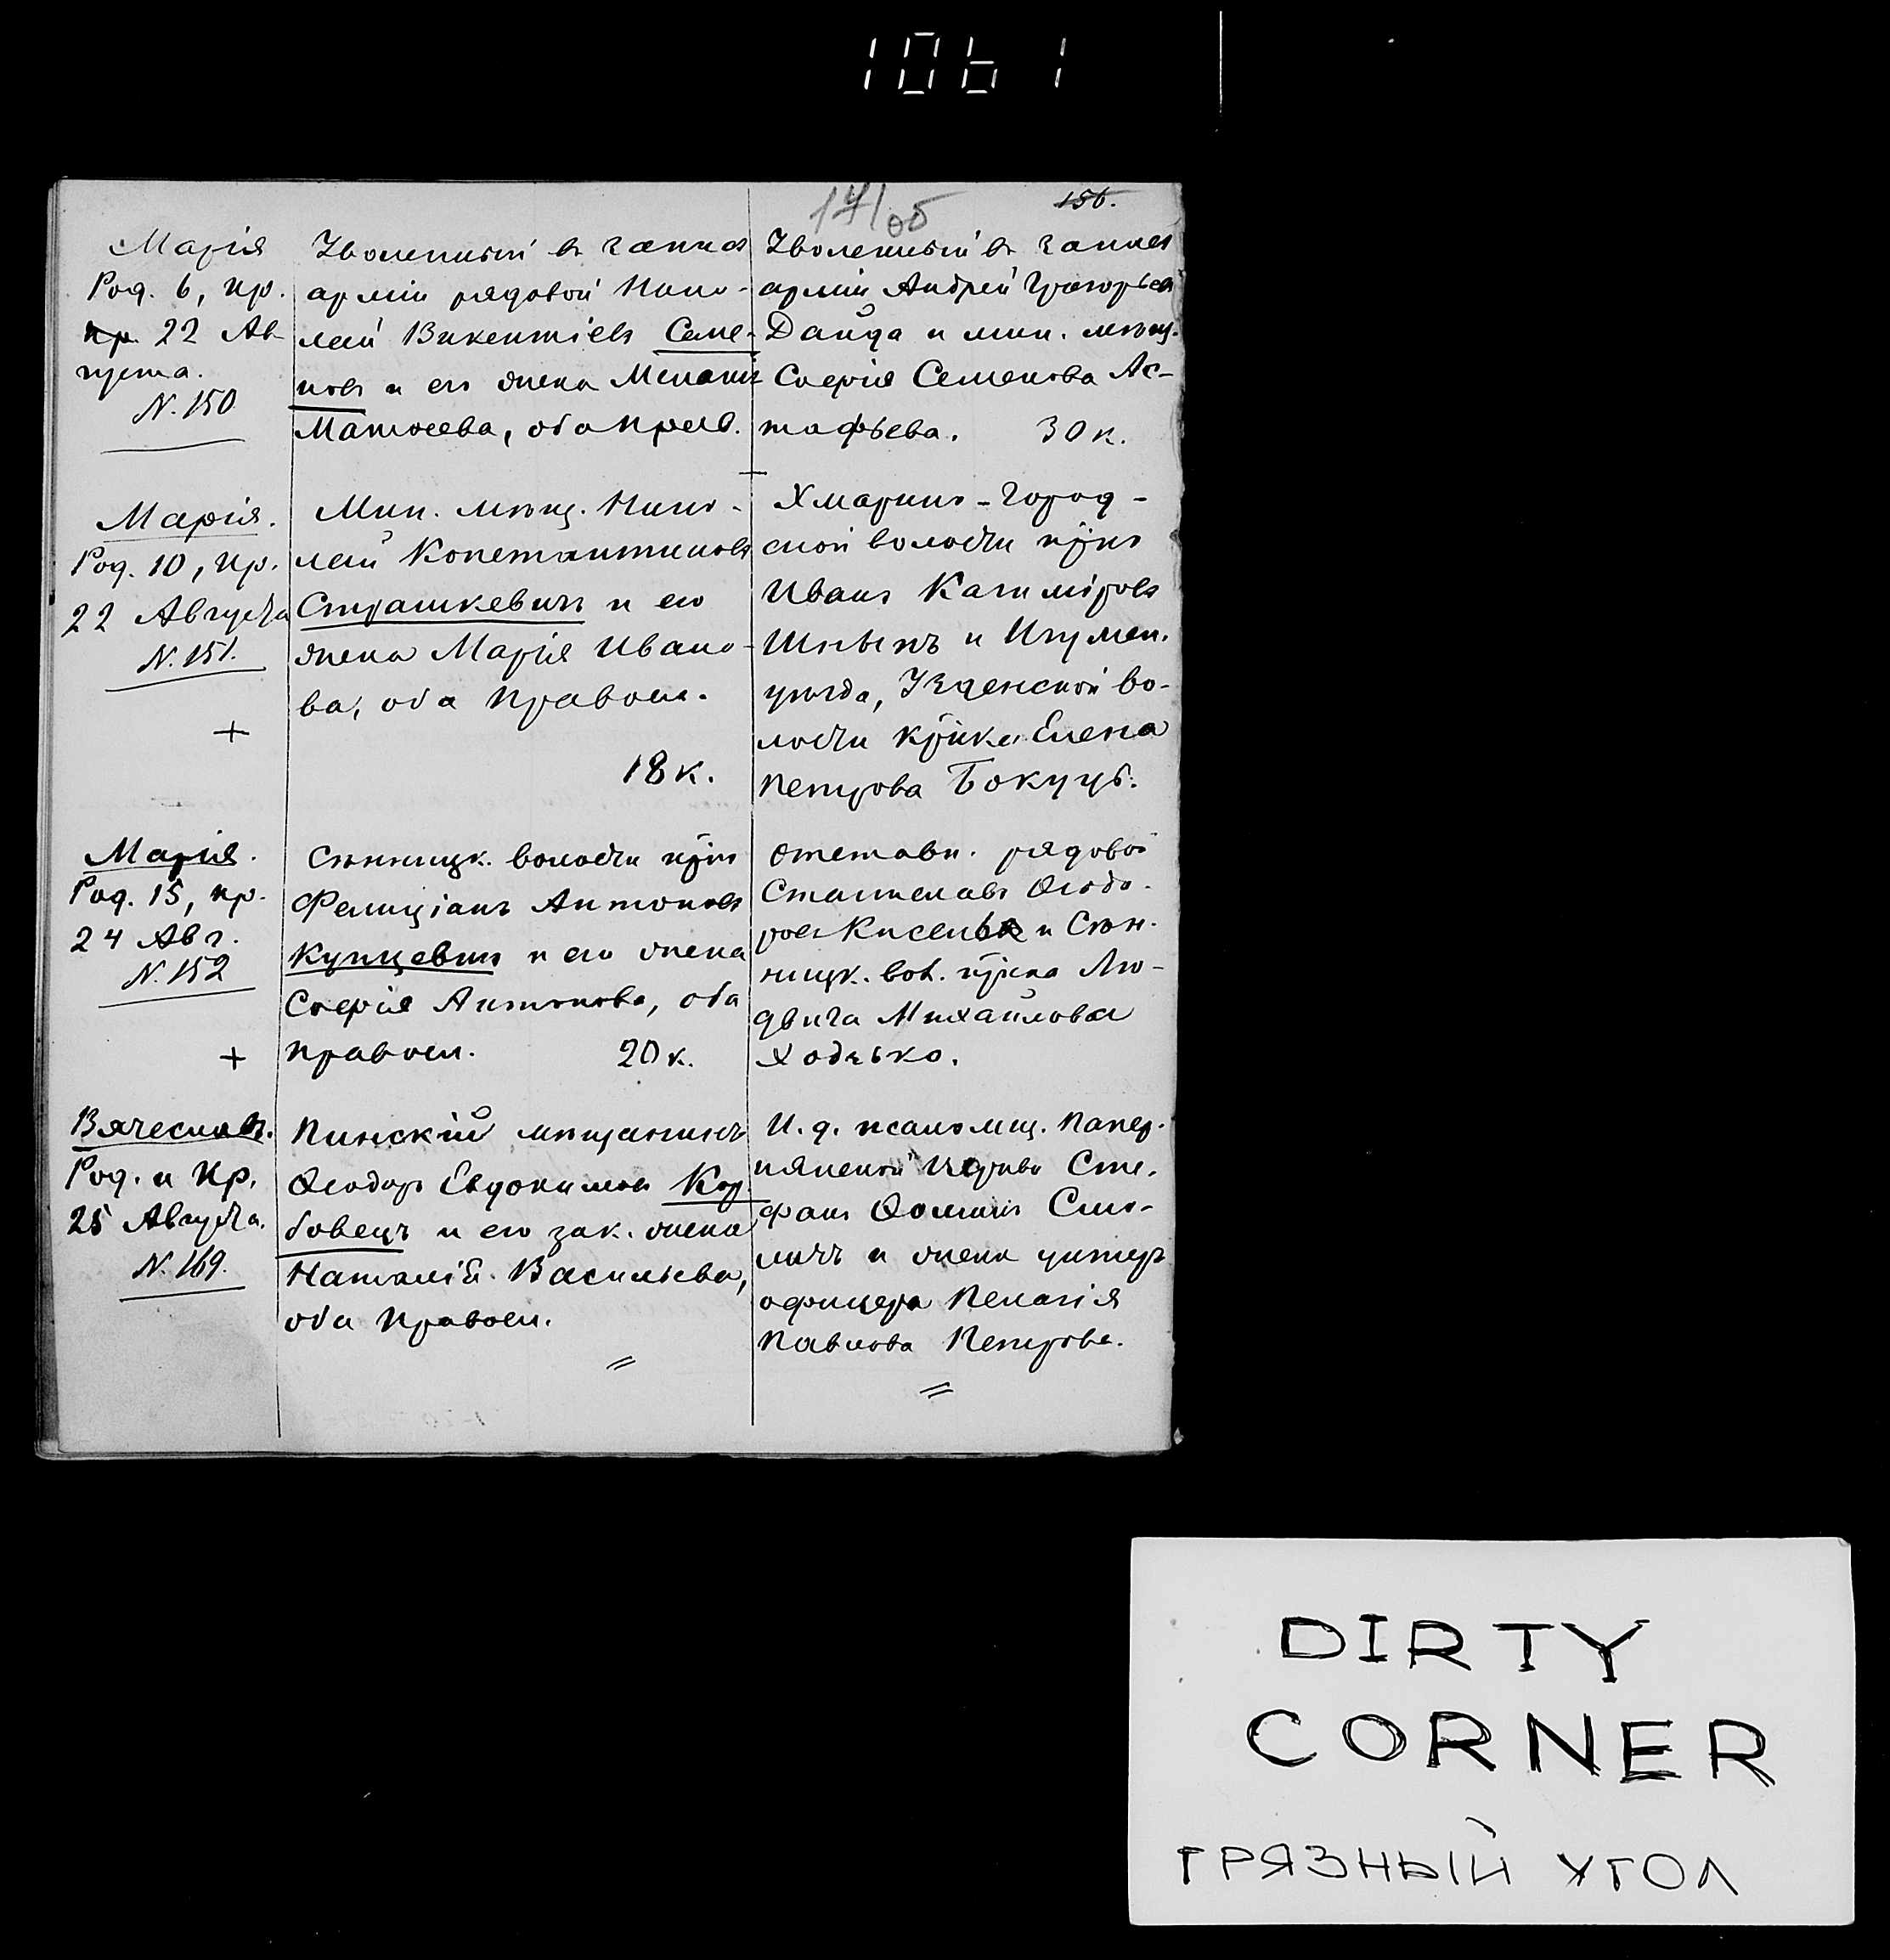 1061
17/об
156.
Марія
Род. 6, кр.
кр. 22 Ав-
густа.
N. 150.
Уволенный въ запасъ
арміи рядовой Нико-
лай Викентіевъ Семе-
новъ и его жена Меланія
Матѳеева, оба прав.
Уволенный въ запасъ
арміи Андрей Григорьевъ
Дайда и мин. мѣщ.
Софія Семенова Ас-
тафьева. 30 к.
Марія.
Род. 10, кр.
22 Августа
N. 151.
+
Мин. мѣщ. Нико-
лай Константиновъ
Страшкевичъ и его
жена Марія Ивано-
ва, оба правосл.
18 к.
Хмарино-Город-
ской волости кр-нъ
Иванъ Казиміровъ
и Игумен.
уѣзда, Узденской во-
лости кр-нка Елена
Петрова Бокуць.
Марія.
Род. 15, кр.
24 Авг.
N. 152
+
Сѣнницк. волости кр-нъ
Фелиціанъ Антоновъ
Купцевичъ и его жена
Софія Антонова, оба
правосл. 20 к.
Отставн. рядовой
Станиславъ Ѳеодо-
ровъ Кисель и Сѣн-
ницк. вол. кр-нка Лю-
двига Михайлова
Ходзько.
Вячеславъ.
Род. и кр.
25 Августа.
N. 169.
Пинскій мѣщанинъ
Ѳеодоръ Евдокимовъ Кор-
бовецъ и его зак. жена
Наталія Васильева,
оба правосл.
И. д. псаломщ. Папер-
нянской церкви Сте-
фанъ Ѳоминъ Смо-
личъ и жена унтеръ
офицера Пелагія
Павлова Петрова.
DIRTY
CORNER
ГРЯЗНЫЙ УГОЛ